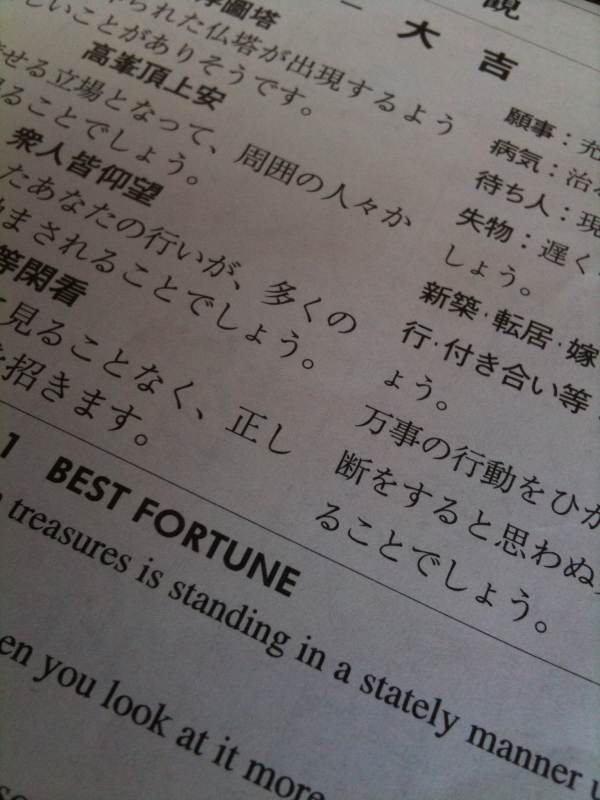 説
一 大吉
圖塔
られた仏塔が出現するよう
しいことがありそうです。
高峯頂上安
せる立場となって、周囲の人々か
ることでしょう。
衆人皆仰望
たあなたの行いが、多くの
まされることでしょう。
等閑看
に見ることなく、正し
を招きます。
願事：充
病気：治
待ち人：現
失物：遅く
しょう。
新築・転居・嫁
行・付き合い等
ょう。
万事の行動をひか
断をすると思わぬ
ることでしょう。
1 BEST FORTUNE
treasures is standing in a stately manner
en you look at it more